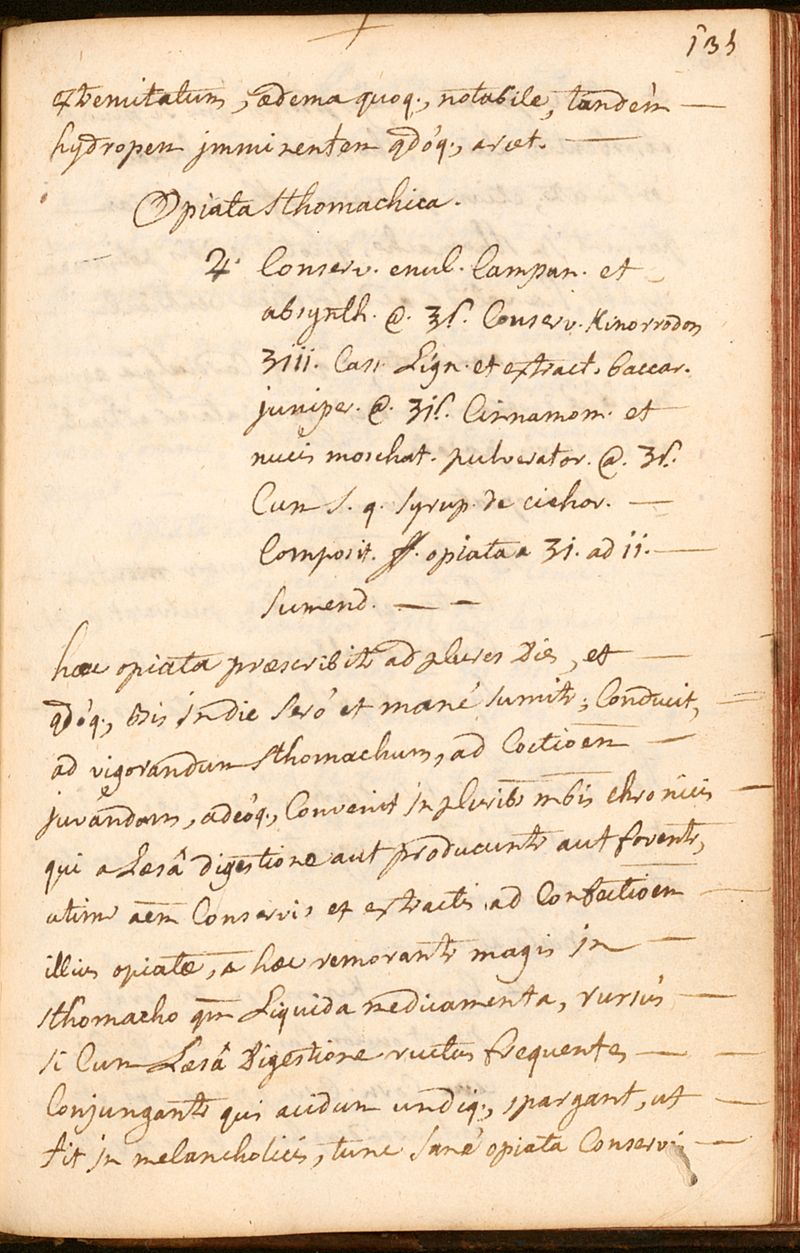 135
extremitatum, œdema quoq., notabile, tandém —
hydropem jmminentem qdóq., arcet. —
Opiata Sthomachica.
♃. Conserv. enul. Campan. et
absynth. @. ʒſ. Conserv. Kinorrodon
ʒiii. Cass. Lign. et extract. baccar.
juniper. @. ʒiſ. Cinnamom. et
nucis moschat. pulverator. @. ʒſ.
Cum S. q. Syrup. de cichor. —
Composit. ff. opiata a ʒi. ad ii. —
Sumend. — –
hæc opiata præscribitr ad plures Dies, et —
qdóq., bis jn die Seró et mané sumitr; Conducit,
ad vigorandum Sthomachum, ad Coctioem —
juvandam, adeóq., Convenit jn pluribs mbis chronicis —
qui a Læsâ digestione aut producuntr aut foventr,
utimr aem Conservis et extractis ad Confectioem —
illius opiatæ, a hæc remorantr magis jn —
Sthomacho qm Liquida medicamenta, rursús —
si Cum Læsâ Digestione ructus frequentes —
Conjungantr qui acidum undiq., spargant, ut —
fit jn melancholicis, tunc Sané opiata Conservi —